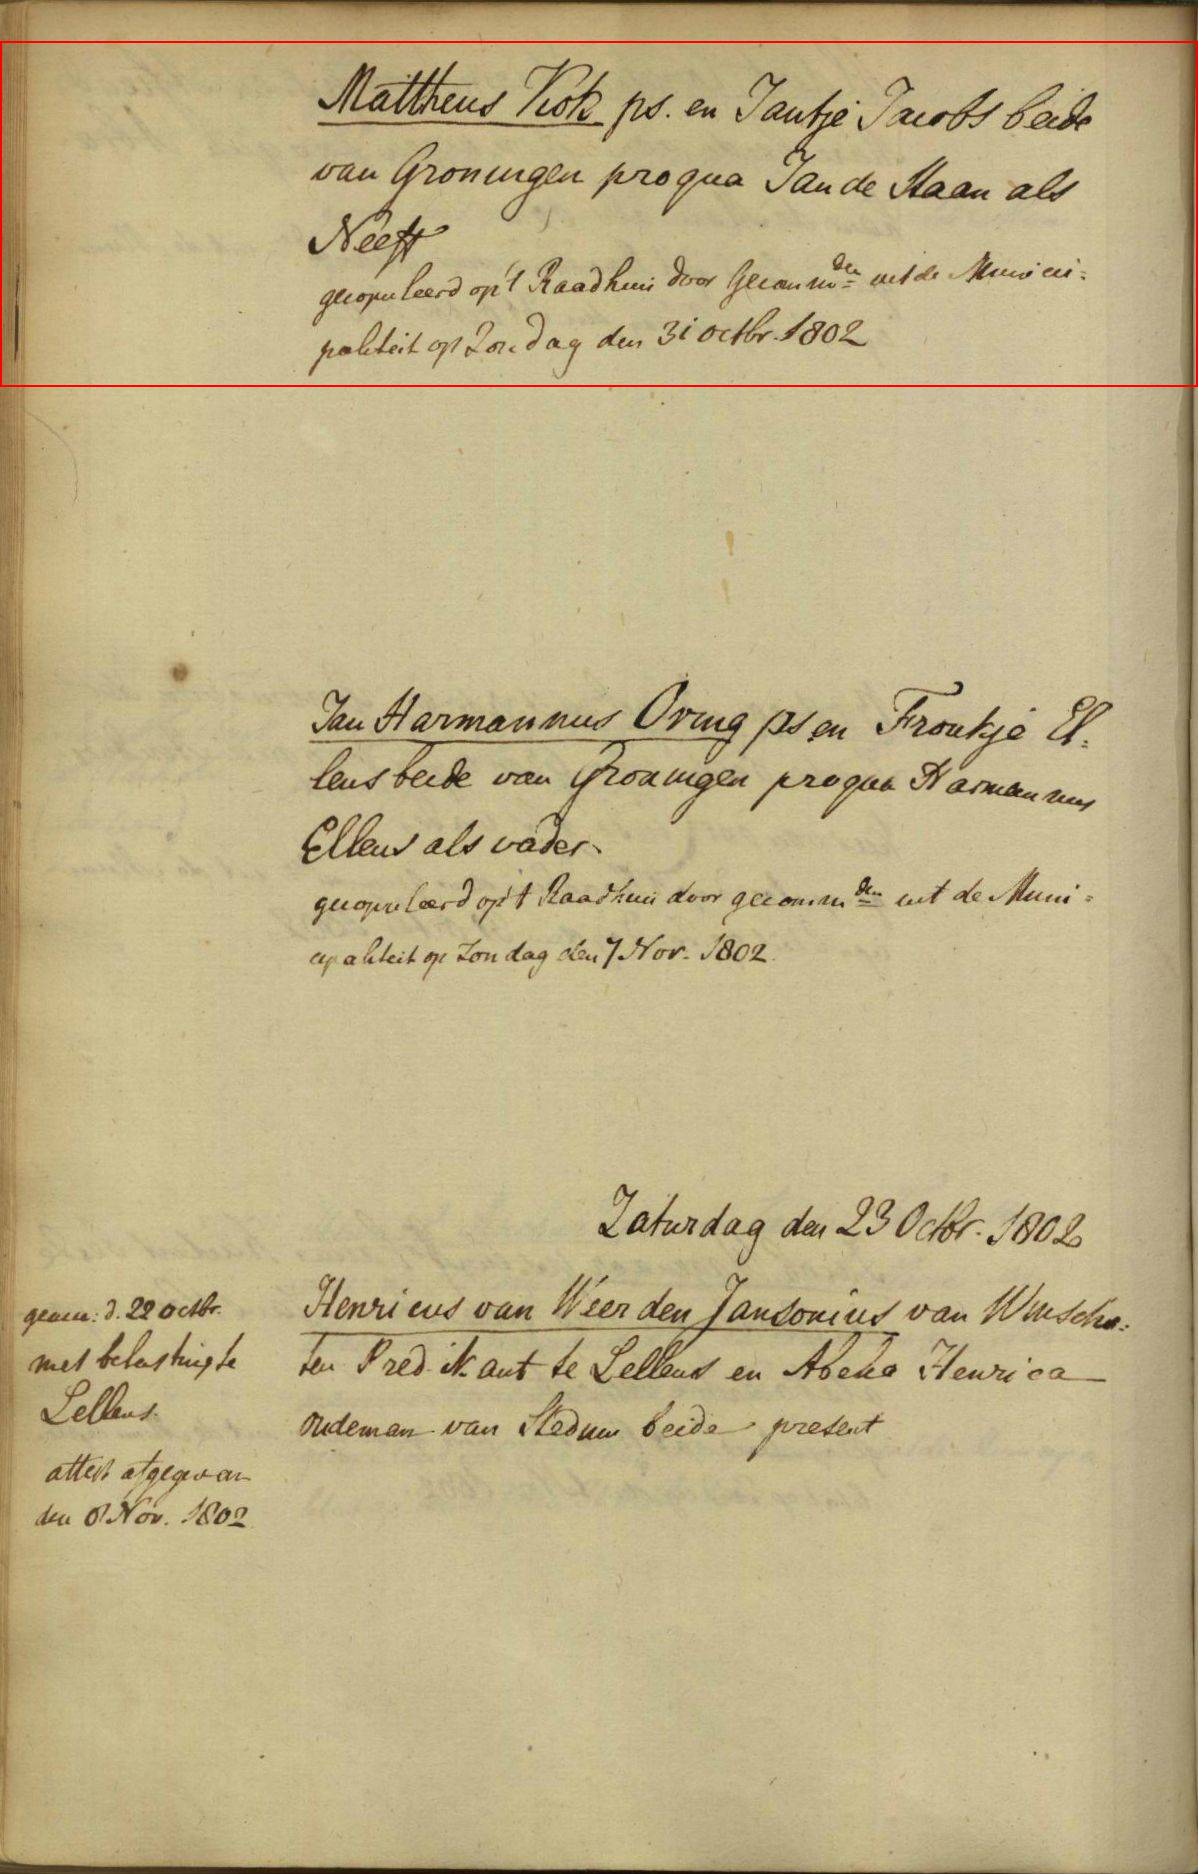 Mattheus Kok ps. en Jantje Jacobs beide
van Groningen proqua Jan de Haan als
Neeff
gecopuleerd op't Raadhuis door Gecommden uit de Munici=
paliteit op Zondag den 31 octbr. 1802
Jan Harmannus Oving ps en Froukje El=
lens beide van Groningen proqua Harmannus
Ellens als vader
gecopuleerd op't Raadhuis door gecommden uit de Muni=
cipaliteit op Zondag den 7 Nov. 1802
Zaturdag den 23 Octbr. 1802
Henricus van Weerden Jansonius van Winscho=
ten Predikant te Lellens en Abeha Henrica
oudeman van Stedum beide present
geann: d. 22 octbr.
met belasting te
Lellens.
attest afgegeven
den 8 Nov. 1802